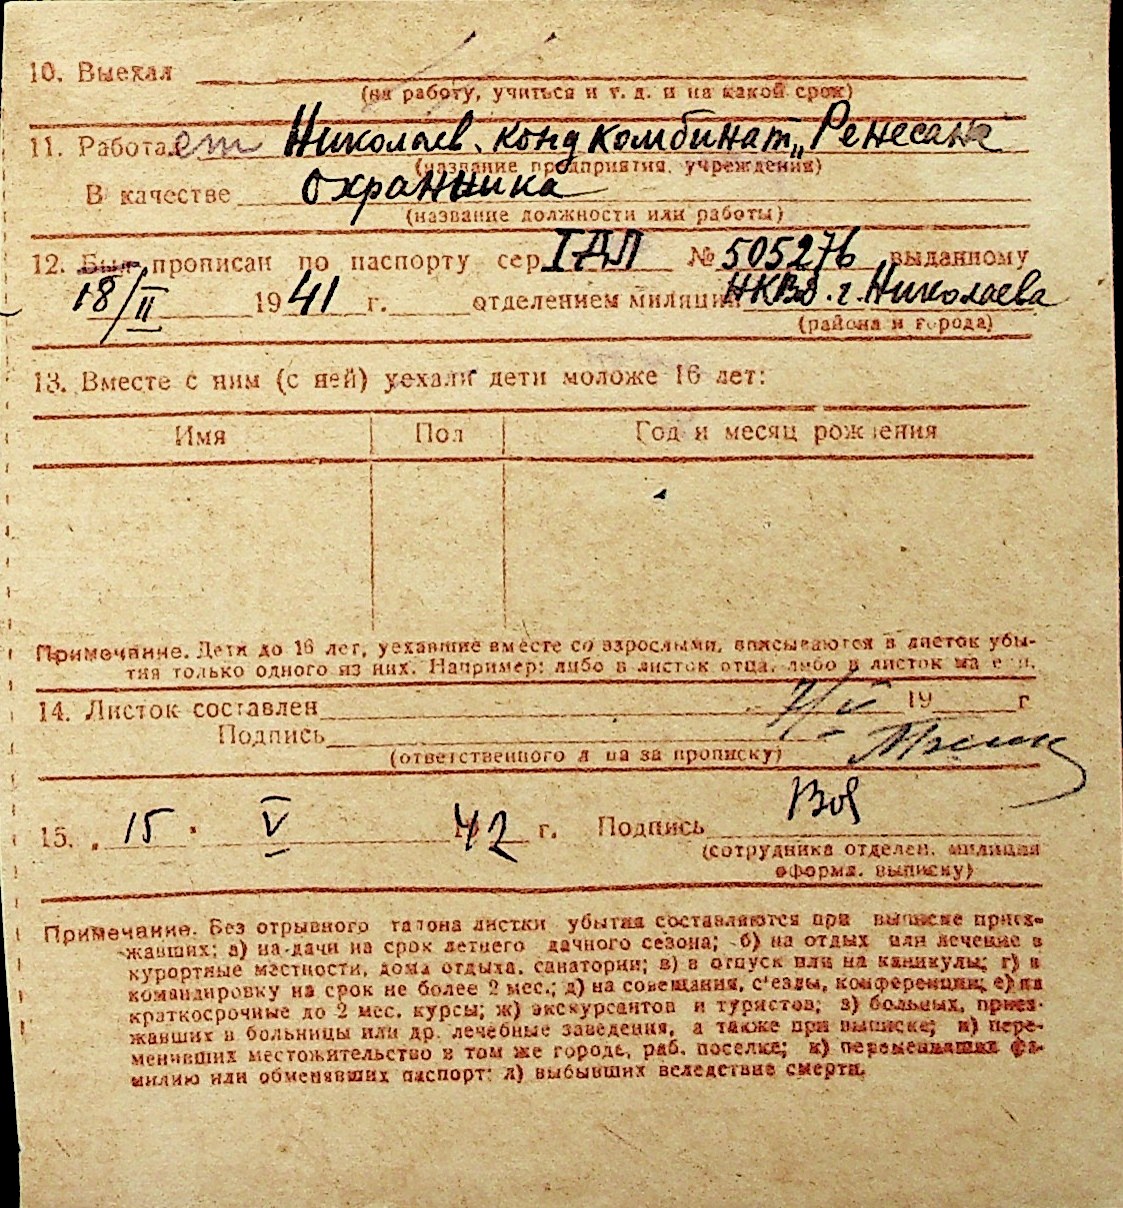 10. Выехал
(на работу, учиться и т. д. и на какой срок)
11. Работает Николаев. конд комбинат „Ренесанс
(название предприятия, учреждения)
В качестве охранника
(название должности или работы)
12. Был прописан по паспорту сер. IДЛ № 505276 выданному
18/II 1941 г. отделением милиции НКВД. г. Николаева
(района и города)
13. Вместе с ним (с ней) уехали дети моложе 16 лет:
Имя Пол Год и месяц рождения
Примечание. Дети до 16 лет, уехавшие вместе со взрослыми, вписываются в листок убы-
тия только одного из них. Например: либо в листок отца, либо в листок матери.
14. Листок составлен 7/V 19 г
Подпись
(ответственного лица за прописку)
15. 15. V 1942 г. Подпись
(сотрудника отделен. милиции
оформл. выписку)
Примечание. Без отрывного талона листки убытия составляются при выписке приез-
жавших: а) на дачи на срок летнего дачного сезона; б) на отдых или лечение в
курортные местности, дома отдыха, санатории; в) в отпуск или на каникулы; г) в
командировку на срок не более 2 мес.; д) на совещания, с'езды, конференции; е) на
краткосрочные до 2 мес. курсы; ж) экскурсантов и туристов; з) больных, приез-
жавших в больницы или др. лечебные заведения, а также при выписке; и) пере-
менивших местожительство в том же городе, раб. поселке; к) переменивших фа-
милию или обменявших паспорт; л) выбывших вследствие смерти.